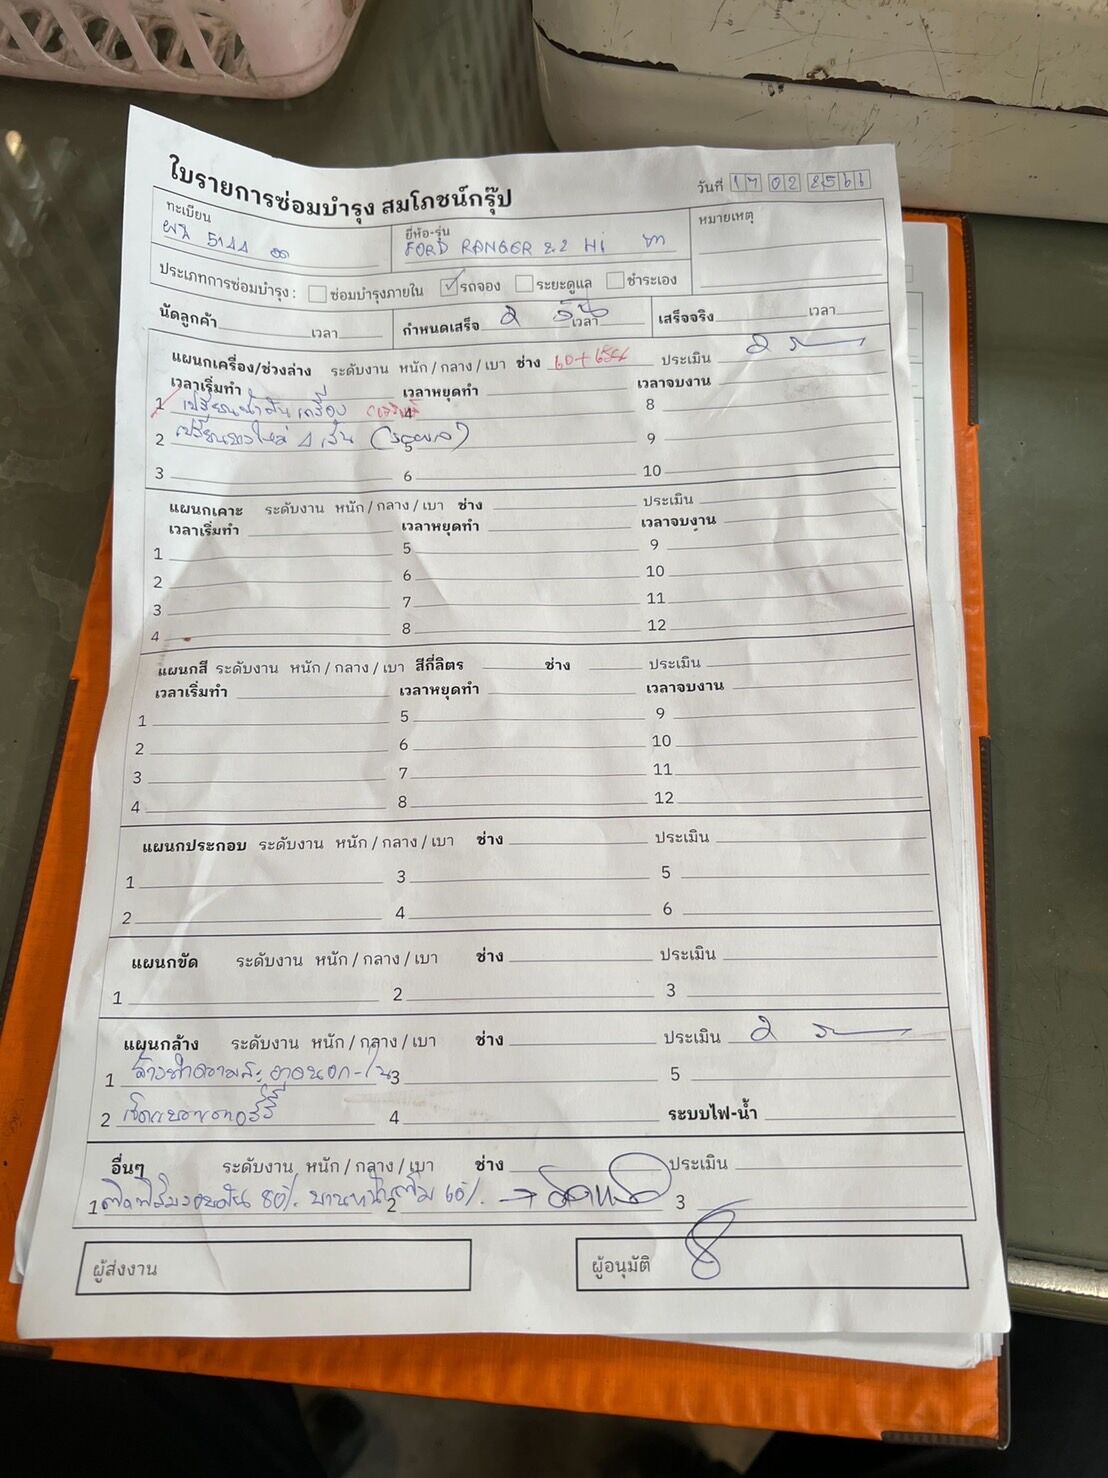 ใบรายการซ่อมบำรุง สมโภชน์กรุ๊ป
วันที่ 17 02 2566
ทะเบียน
5144
ยี่ห้อ-รุ่น
FORD RANGER 2.2 Hi
หมายเหตุ
ประเภทการซ่อมบำรุง : ซ่อมบำรุงภายใน รถจอง ระยะดูแล ชำระเอง
นัดลูกค้า เวลา กำหนดเสร็จ 2 วัน เวลา เสร็จจริง เวลา
แผนกเครื่อง/ช่วงล่าง ระดับงาน หนัก / กลาง / เบา ช่าง ประเมิน
เวลาเริ่มทำ เวลาหยุดทำ เวลาจบงาน
1 เปลี่ยนน้ำมันเครื่อง 4 8
2 เปลี่ยนยางใหม่ 4 เส้น 5 9
3 6 10
แผนกเคาะ ระดับงาน หนัก / กลาง / เบา ช่าง ประเมิน
เวลาเริ่มทำ เวลาหยุดทำ เวลาจบงาน
1 5 9
2 6 10
3 7 11
4 8 12
แผนกสี ระดับงาน หนัก / กลาง / เบา สีกี่ลิตร ช่าง ประเมิน
เวลาเริ่มทำ เวลาหยุดทำ เวลาจบงาน
1 5 9
2 6 10
3 7 11
4 8 12
แผนกประกอบ ระดับงาน หนัก / กลาง / เบา ช่าง ประเมิน
1 3 5
2 4 6
แผนกขัด ระดับงาน หนัก / กลาง / เบา ช่าง ประเมิน
1 2 3
แผนกล้าง ระดับงาน หนัก / กลาง / เบา ช่าง ประเมิน
1 ล้างทำความสะอาดนอก-ใน 3 5
2 เช็คแบตเตอรี่ 4 ระบบไฟ-น้ำ
อื่นๆ ระดับงาน หนัก / กลาง / เบา ช่าง ประเมิน
1 ติดฟิล์มรอบคัน 80% บานหน้าเต็ม 60% 2 3
ผู้ส่งงาน
ผู้อนุมัติ